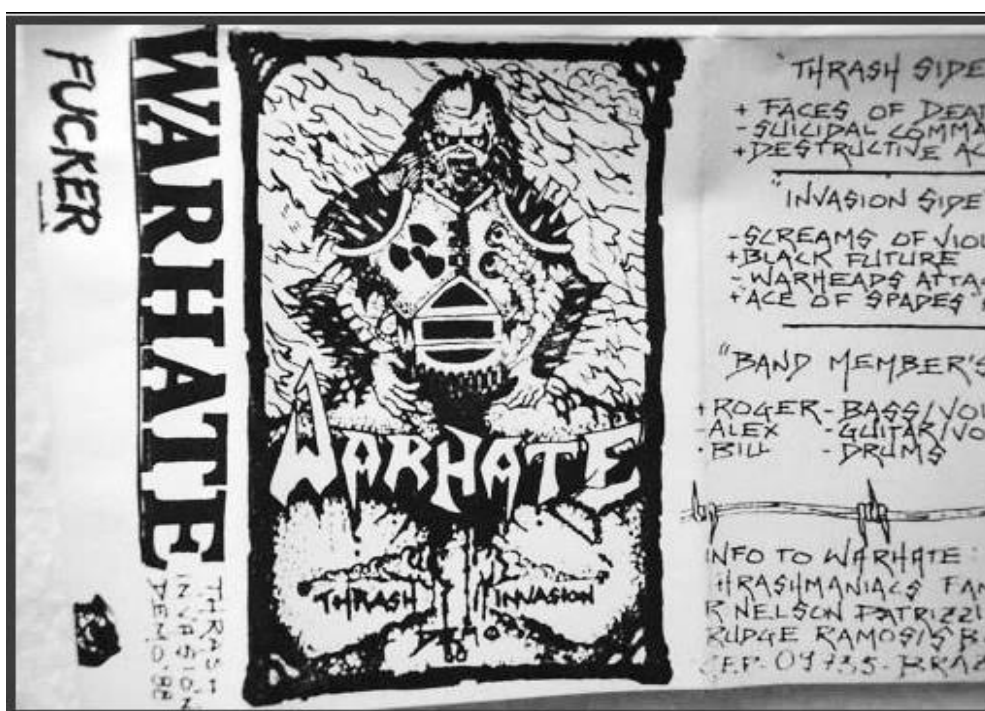 FUCKER
WARHATE
THRASH
INVASION
DEMO'88
WARHATE
"THRASH INVASION"
DEMO
88
"THRASH SIDE
+ FACES OF
- SUICIDAL
+ DESTRUCTIVE
"INVASION SIDE"
- SCREAMS OF
+ BLACK FUTURE
- WARHEADS
+ ACE OF SPADES"
"BAND MEMBER'S
+ ROGER - BASS/
- ALEX - GUITAR/
· BILL - DRUMS
INFO TO WARHATE:
THRASHMANIACS
R NELSON
RUDGE RAMOS
C.E.P. 09735-